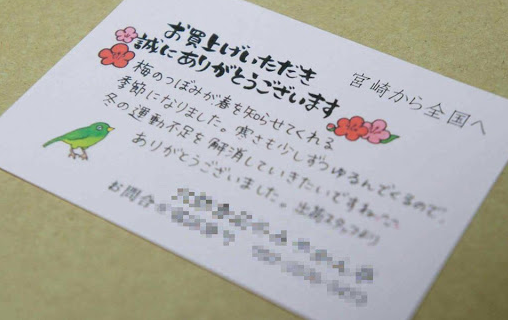 お買上げいただき
誠にありがとうございます
宮崎から全国へ
梅のつぼみが春を知らせてくれる
季節になりました。寒さも少しずつゆるんでくるので、
冬の運動不足を解消していきたいですね^^
ありがとうございました。出荷スタッフより
お問合せ